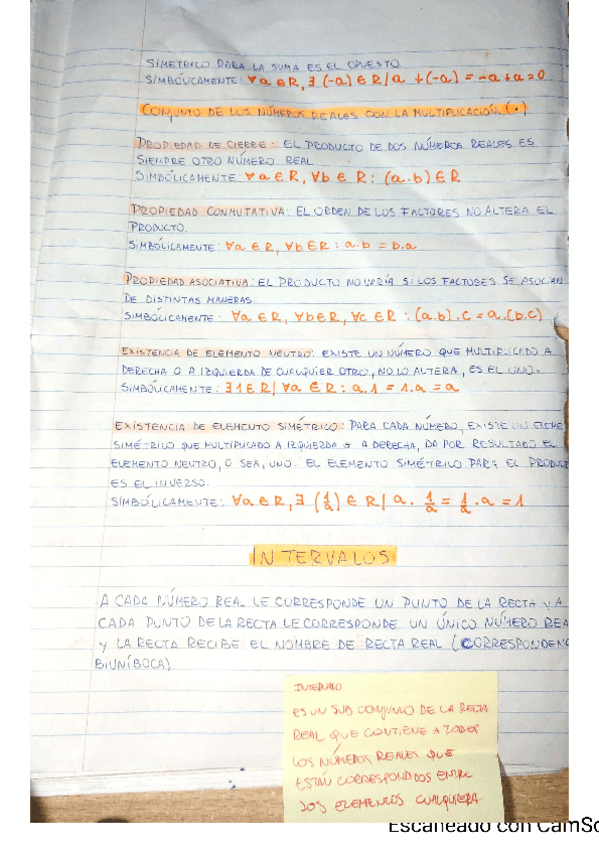 SIMÉTRICO PARA LA SUMA ES EL OPUESTO.
SIMBÓLICAMENTE: ∀a ∈ R, ∃ (-a) ∈ R / a + (-a) = -a + a = 0
CONJUNTO DE LOS NÚMEROS REALES CON LA MULTIPLICACIÓN. (•)
PROPIEDAD DE CIERRE: EL PRODUCTO DE DOS NÚMEROS REALES ES
SIEMPRE OTRO NÚMERO REAL
SIMBÓLICAMENTE: ∀a ∈ R, ∀b ∈ R : (a.b) ∈ R
PROPIEDAD CONMUTATIVA: EL ORDEN DE LOS FACTORES NO ALTERA EL
PRODUCTO.
SIMBÓLICAMENTE: ∀a ∈ R, ∀b ∈ R : a.b = b.a
PROPIEDAD ASOCIATIVA: EL PRODUCTO NO VARÍA SI LOS FACTORES SE ASOCIAN
DE DISTINTAS MANERAS.
SIMBÓLICAMENTE: ∀a ∈ R, ∀b ∈ R, ∀c ∈ R : (a.b).c = a.(b.c)
EXISTENCIA DE ELEMENTO NEUTRO: EXISTE UN NÚMERO QUE MULTIPLICADO A
DERECHA O A IZQUIERDA DE CUALQUIER OTRO, NO LO ALTERA, ES EL UNO.
SIMBÓLICAMENTE: ∃ 1 ∈ R / ∀a ∈ R : a.1 = 1.a = a
EXISTENCIA DE ELEMENTO SIMÉTRICO: PARA CADA NÚMERO, EXISTE UN ELEME
SIMÉTRICO QUE MULTIPLICADO A IZQUIERDA Y A DERECHA, DA POR RESULTADO EL
ELEMENTO NEUTRO, O SEA, UNO. EL ELEMENTO SIMÉTRICO PARA EL PRODUCT
ES EL INVERSO.
SIMBÓLICAMENTE: ∀a ∈ R, ∃ (1/a) ∈ R / a . 1/a = 1/a . a = 1
INTERVALOS
A CADA NÚMERO REAL LE CORRESPONDE UN PUNTO DE LA RECTA Y A
CADA PUNTO DE LA RECTA LE CORRESPONDE UN ÚNICO NÚMERO REA
Y LA RECTA RECIBE EL NOMBRE DE RECTA REAL (CORRESPONDENC
BIUNÍBOCA)
INTERVALO
ES UN SUB CONJUNTO DE LA RECTA
REAL QUE CONTIENE A TODOS
LOS NÚMEROS REALES QUE
ESTÁN CORRESPONDIDOS ENTRE
DOS ELEMENTOS CUALQUIERA
Escaneado con CamSc